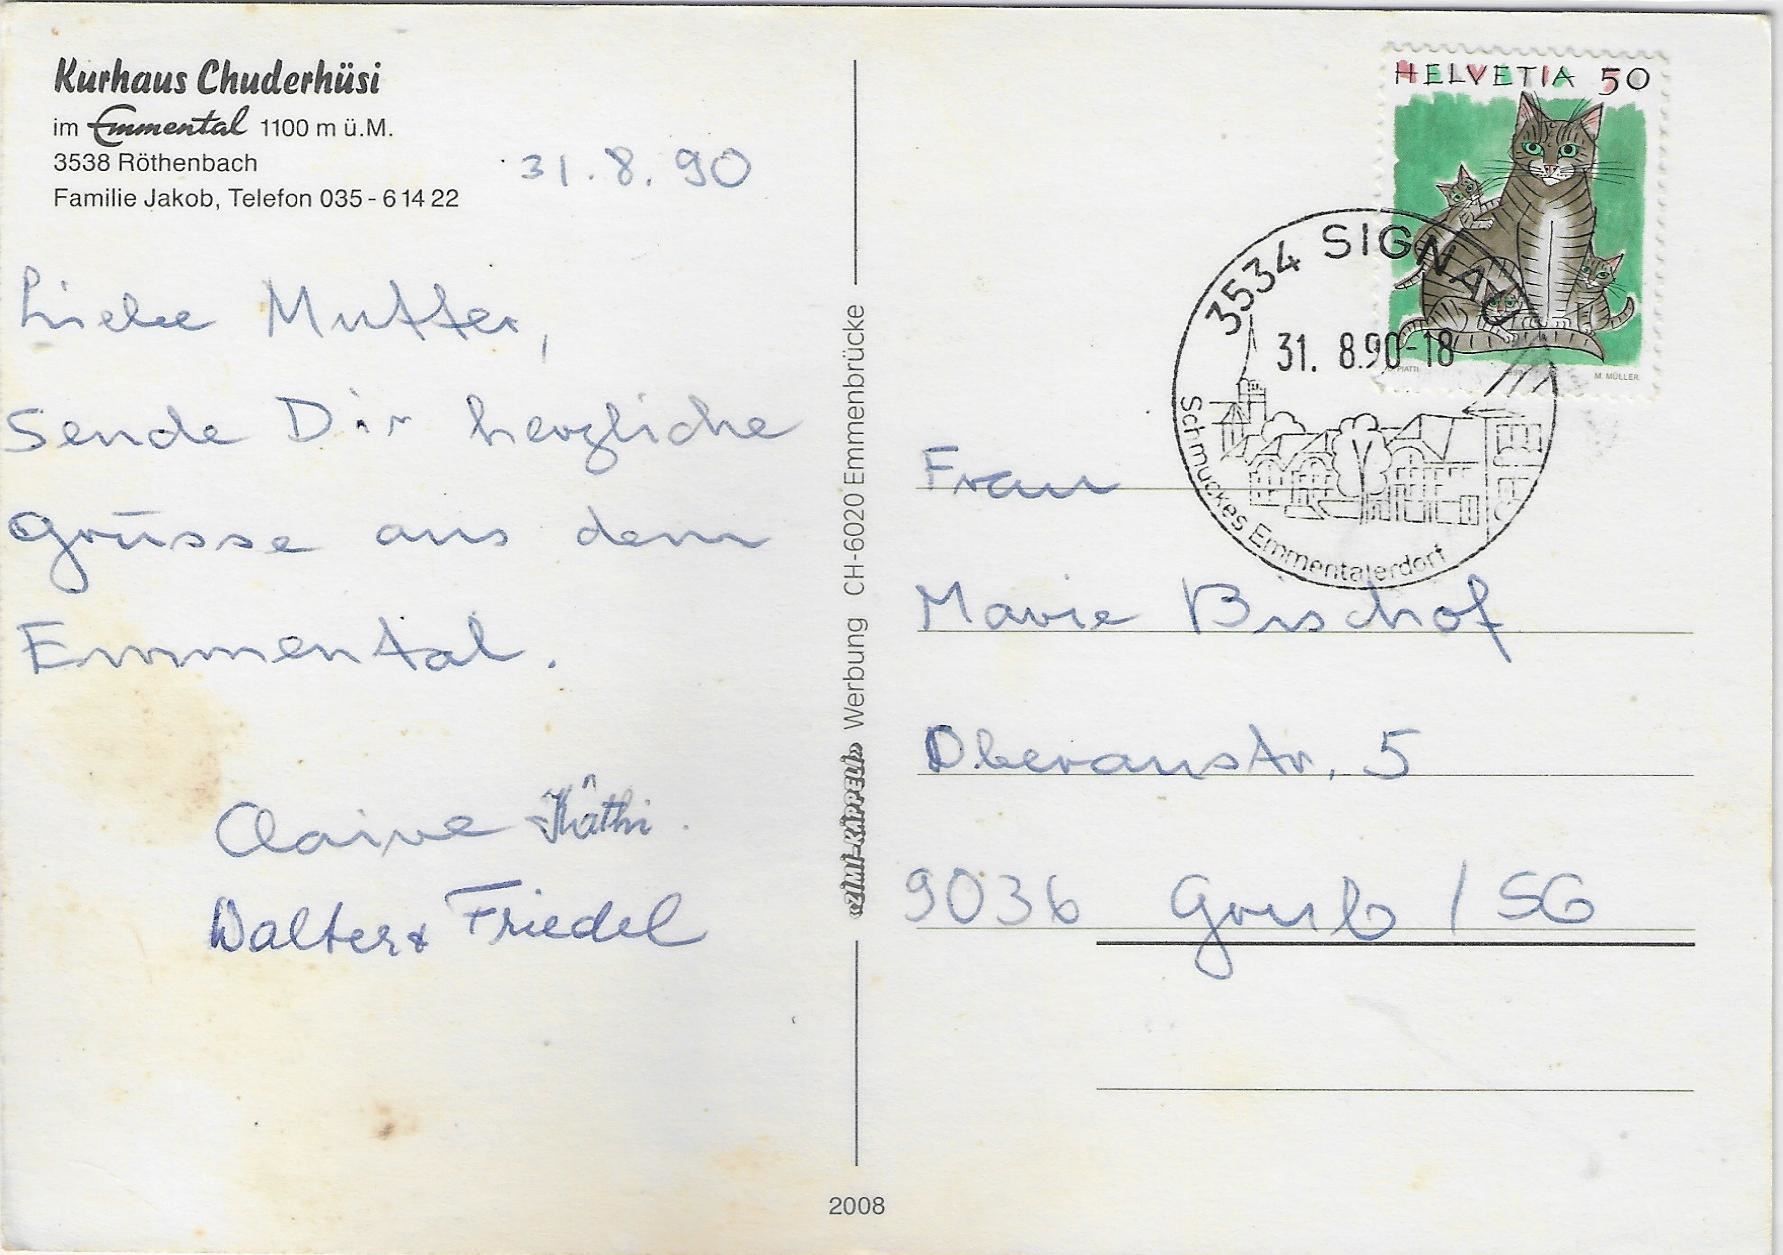 Kurhaus Chuderhüsi
im Emmental 1100 m ü.M.
3538 Röthenbach
Familie Jakob, Telefon 035 - 6 14 22
31.8.90
Liebe Mutter,
sende Dir herzliche
Grüsse aus dem
Emmental.
Claire Käthi
Walter & Friedel
«ZIMI-KÄPPELI» Werbung CH-6020 Emmenbrücke
2008
HELVETIA 50
PIATTI
M. MÜLLER
3534 SIGNAU
31. 8.90-18
Schmuckes Emmentalerdorf
Frau
Marie Bischof
Oberaustr. 5
9036 Grub / SG